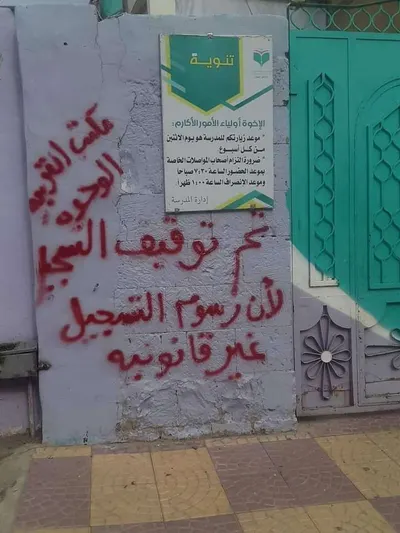 تنوية
الإخوة أولياء الأمور الأكارم:
* موعد زيارتكم للمدرسة هو يوم الاثنين
من كل أسبوع
* ضرورة التزام أصحاب المواصلات الخاصة
بموعد الحضور الساعة ٧:٢٠ صباحا
وموعد الانصراف الساعة ١:٠٠ ظهرا
إدارة المدرسة
مكتب التربيه
الوحده
تم توقيف التسجيل
لأن رسوم التسجيل
غير قانونيه